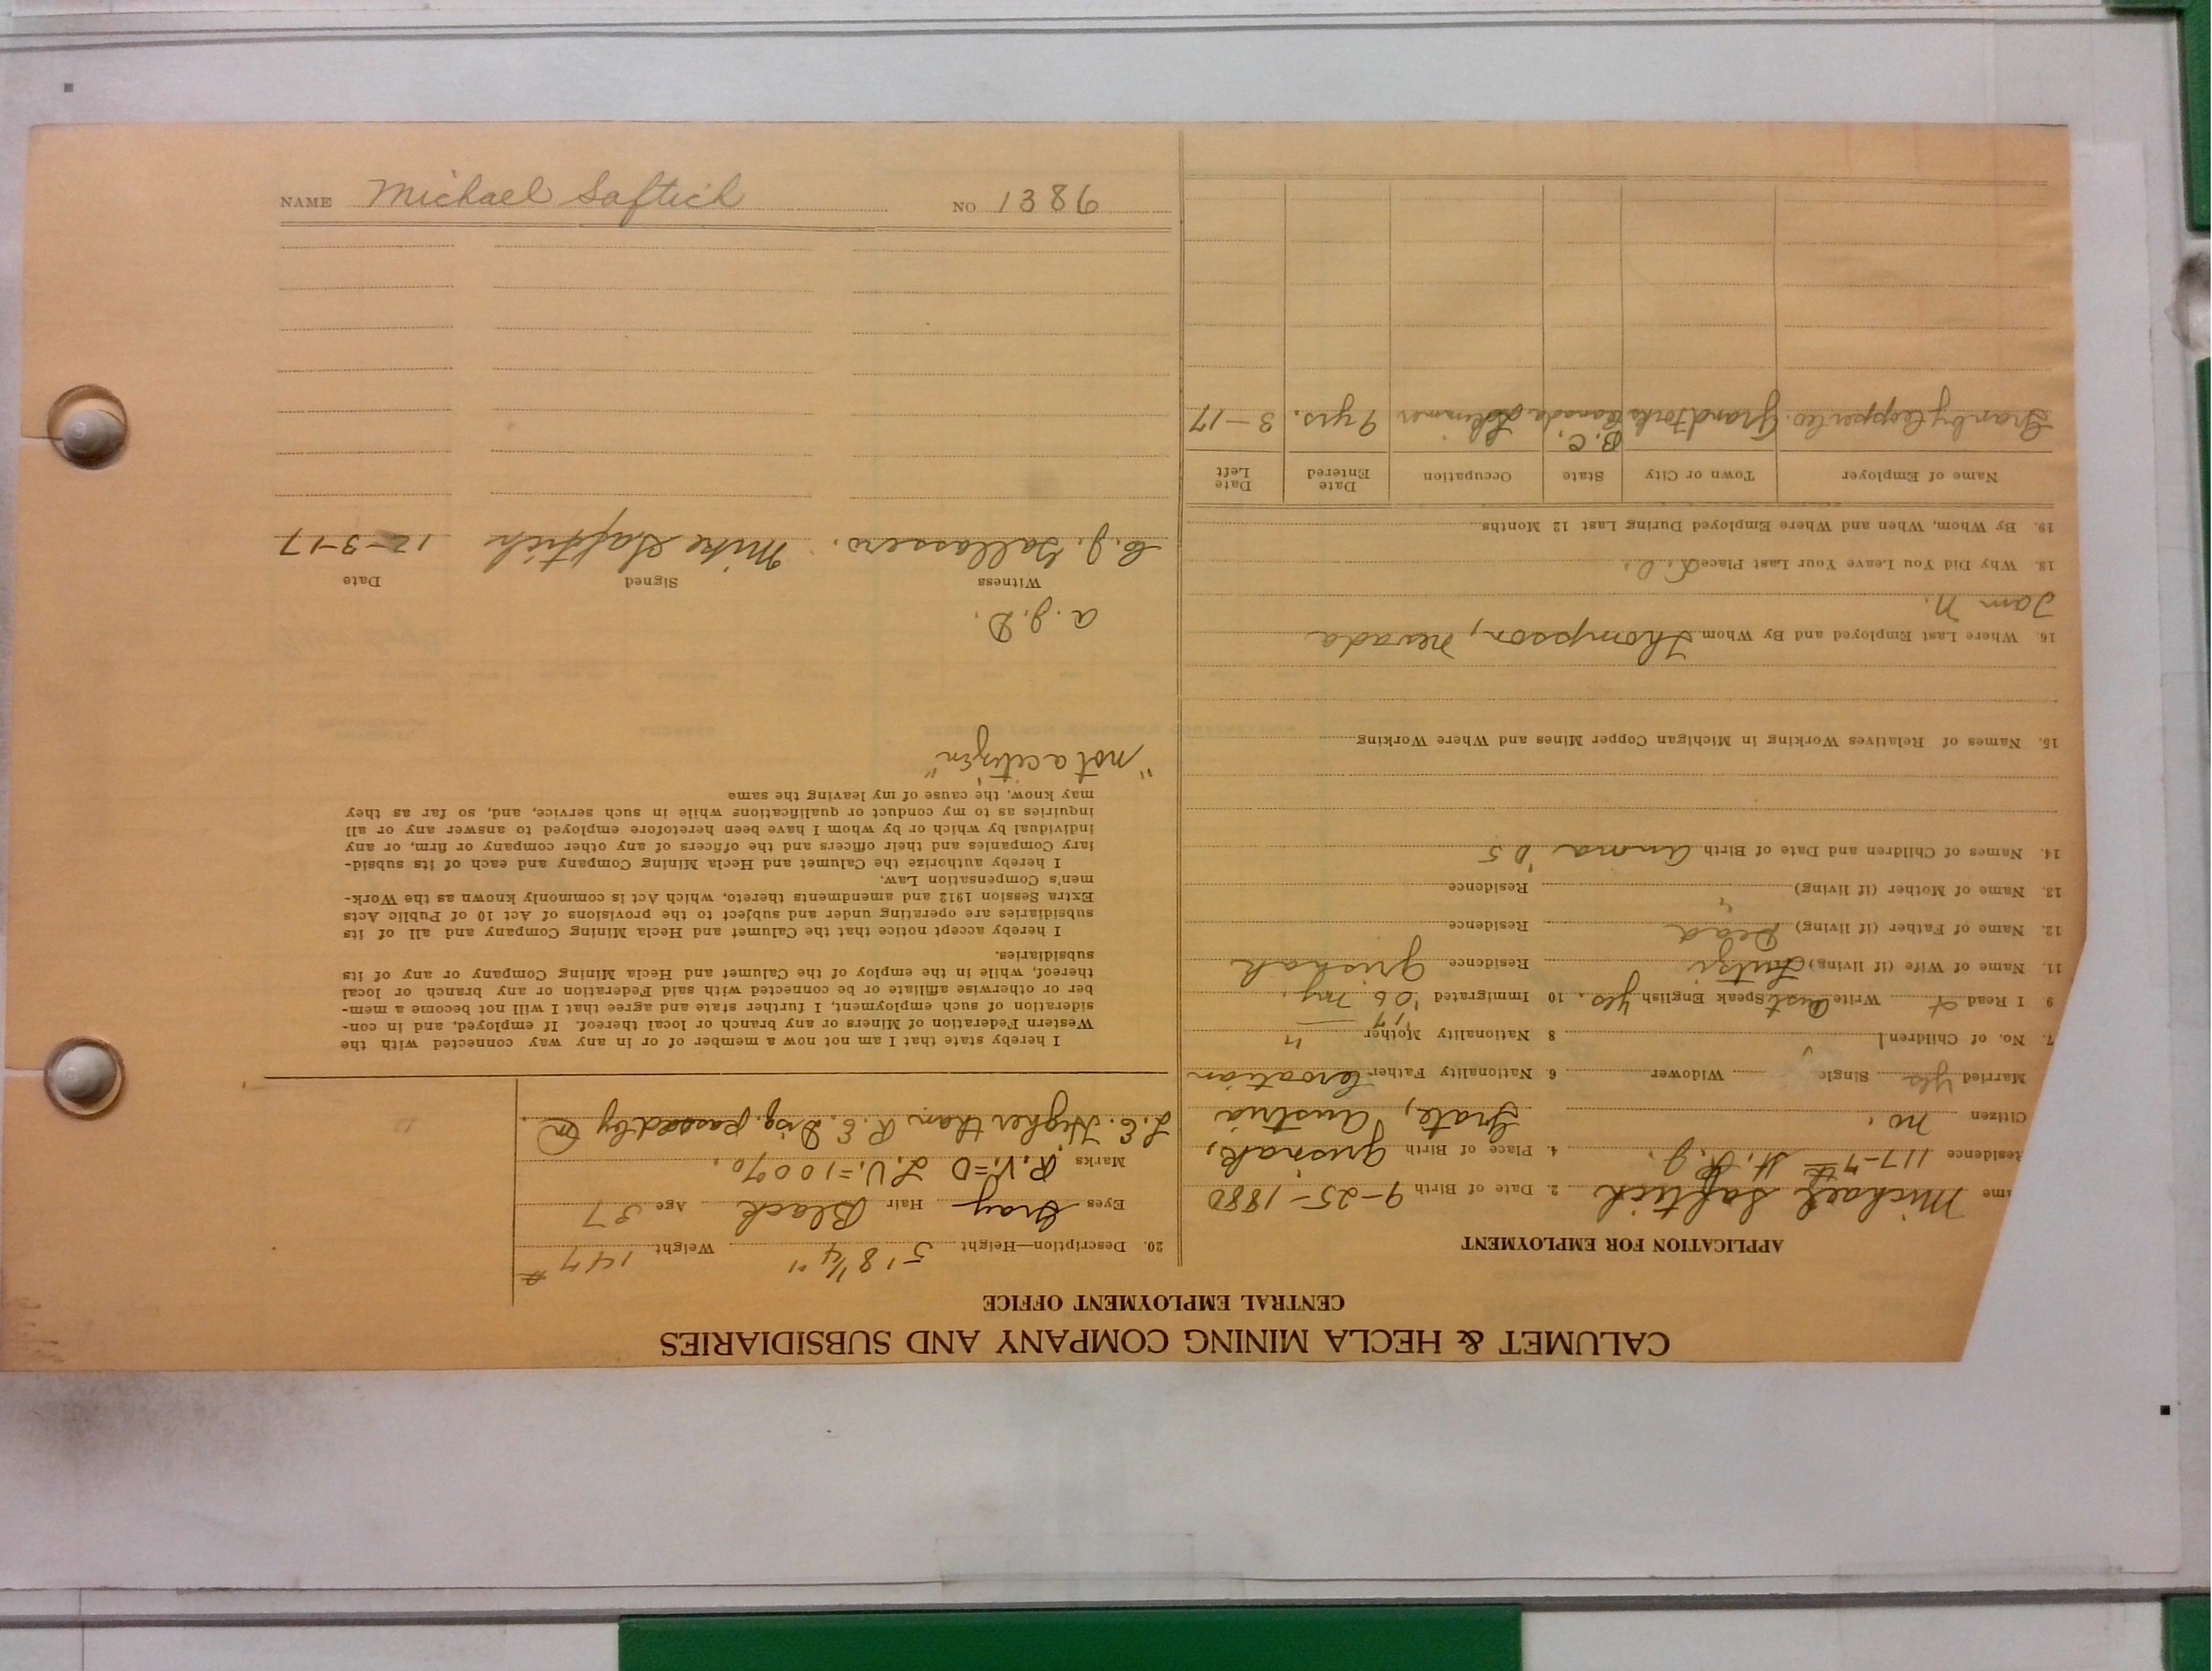 NAME Michael Saftich NO 1386
CALUMET & HECLA MINING COMPANY AND SUBSIDIARIES
CENTRAL EMPLOYMENT OFFICE
APPLICATION FOR EMPLOYMENT
me Michael Saftich 2. Date of Birth 9-25-1880
Residence 117-7th St. R.J. 4. Place of Birth Grisnak,
Citizen no. Austria
Married yes Single Widower 6. Nationality Father Croatian
7. No. of Children 1 8 Nationality Mother "
9 I Read + Write Aust Speak English yes. 10 Immigrated '06 N.Y.
11. Name of Wife (if living) Residence Grisnak
12. Name of Father (if living) Dead Residence
13. Name of Mother (if living) " Residence
14. Names of Children and Date of Birth Anna '05
15. Names of Relatives Working in Michigan Copper Mines and Where Working
16. Where Last Employed and By Whom Thompson, Nevada
18. Why Did You Leave Your Last Place
19. By Whom, When and Where Employed During Last 12 Months
Name of Employer Town or City State Occupation Date Entered Date Left
Granby Copper Co. Grand Forks B.C. Canada 9 yrs. 3-17
20. Description—Height 5' 8 1/4" Weight 147 #
Eyes Gray Hair Black Age 37
Marks R.V.=0 L.V.=100%.
L.E. Higher than R.E. Disq. passed by
I hereby state that I am not now a member of or in any way connected with the
Western Federation of Miners or any branch or local thereof. If employed, and in con-
sideration of such employment, I further state and agree that I will not become a mem-
ber or otherwise affiliate or be connected with said Federation or any branch or local
thereof, while in the employ of the Calumet and Hecla Mining Company or any of its
subsidiaries.
I hereby accept notice that the Calumet and Hecla Mining Company and all of its
subsidiaries are operating under and subject to the provisions of Act 10 of Public Acts
Extra Session 1912 and amendments thereto, which Act is commonly known as the Work-
men's Compensation Law.
I hereby authorize the Calumet and Hecla Mining Company and each of its subsid-
iary Companies and their officers and the officers of any other company or firm, or any
individual by which or by whom I have been heretofore employed to answer any or all
inquiries as to my conduct or qualifications while in such service, and, so far as they
may know, the cause of my leaving the same
"not a citizen"
A.J.D.
Witness Signed Date
Mike Saftich 12-3-17